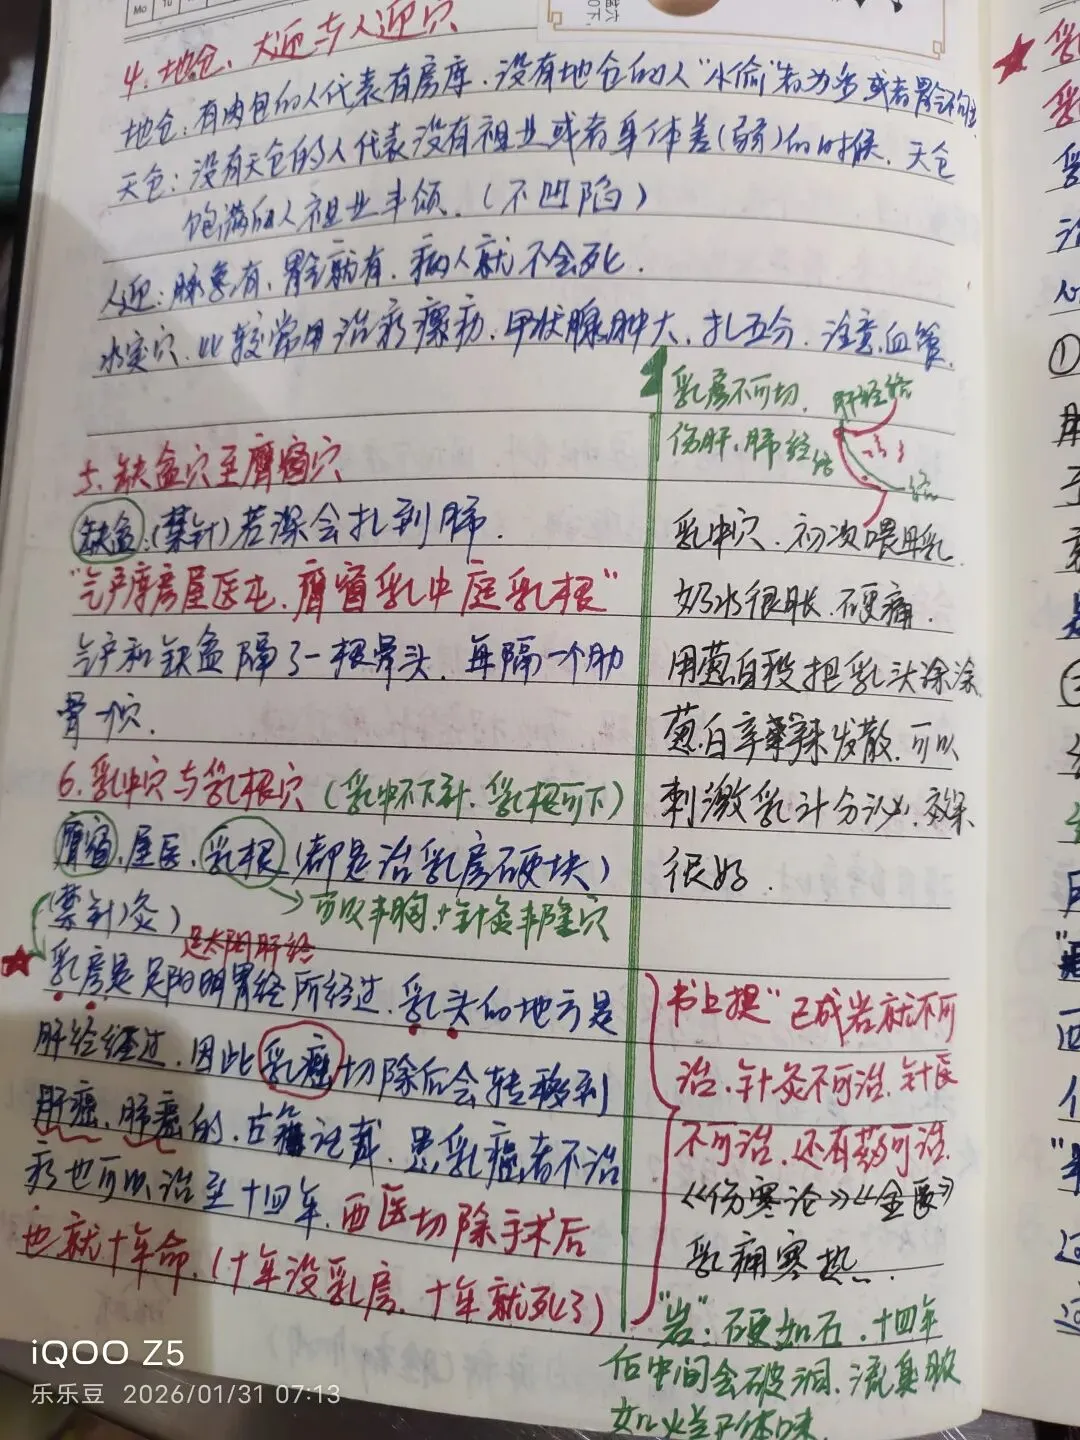 4. 地仓、大迎与人迎穴
地仓:有肉包的人代表有房库.没有地仓的人“小偷”者为多或者胃气不
天仓:没有天仓的人代表没有祖业或者身体差(弱)的时候.天仓
饱满的人祖业丰硕.(不凹陷)
人迎:脉象有,胃气就有.病人就不会死.
水突穴.比较常用治疗瘰疬.甲状腺肿大.扎五分.注意血管.
五.缺盆穴至膺窗穴
缺盆:(禁针)若深会扎到肺.
“气户库房屋医屯.膺窗乳中庭乳根”
气户和缺盆隔了一根骨头.每隔一个肋
骨一穴.
6.乳中穴与乳根穴(乳中不下针.乳根可下)
膺窗.屋医.乳根(都是治乳房硬块)
(禁针)灸)
可以丰胸+针灸丰隆穴
足太阳肝经
乳房是足阳明胃经所经过.乳头的地方是
肝经经过.因此乳癌切除后会转移到
肝癌.肺癌的.古籍记载.患乳癌者不治
疗也可以治至十四年.西医切除手术后
也就十年命.(十年没乳房.十年就死了)
乳房不可切.肝经络
伤肝、肺经络
络
乳中穴.初次喂母乳.
奶水很胀.硬痛.
用葱白段把乳头涂涂
葱白辛辣发散.可以
刺激乳汁分泌.效果
很好.
书上提“已成岩就不可
治.针灸不可治.针医
不可治.还有药可治.
《伤寒论》《金匮》
乳痛寒热.
“岩”:硬如石.十四年
后中间会破洞.流臭脓
iQOO Z5
乐乐豆 2026/01/31 07:13